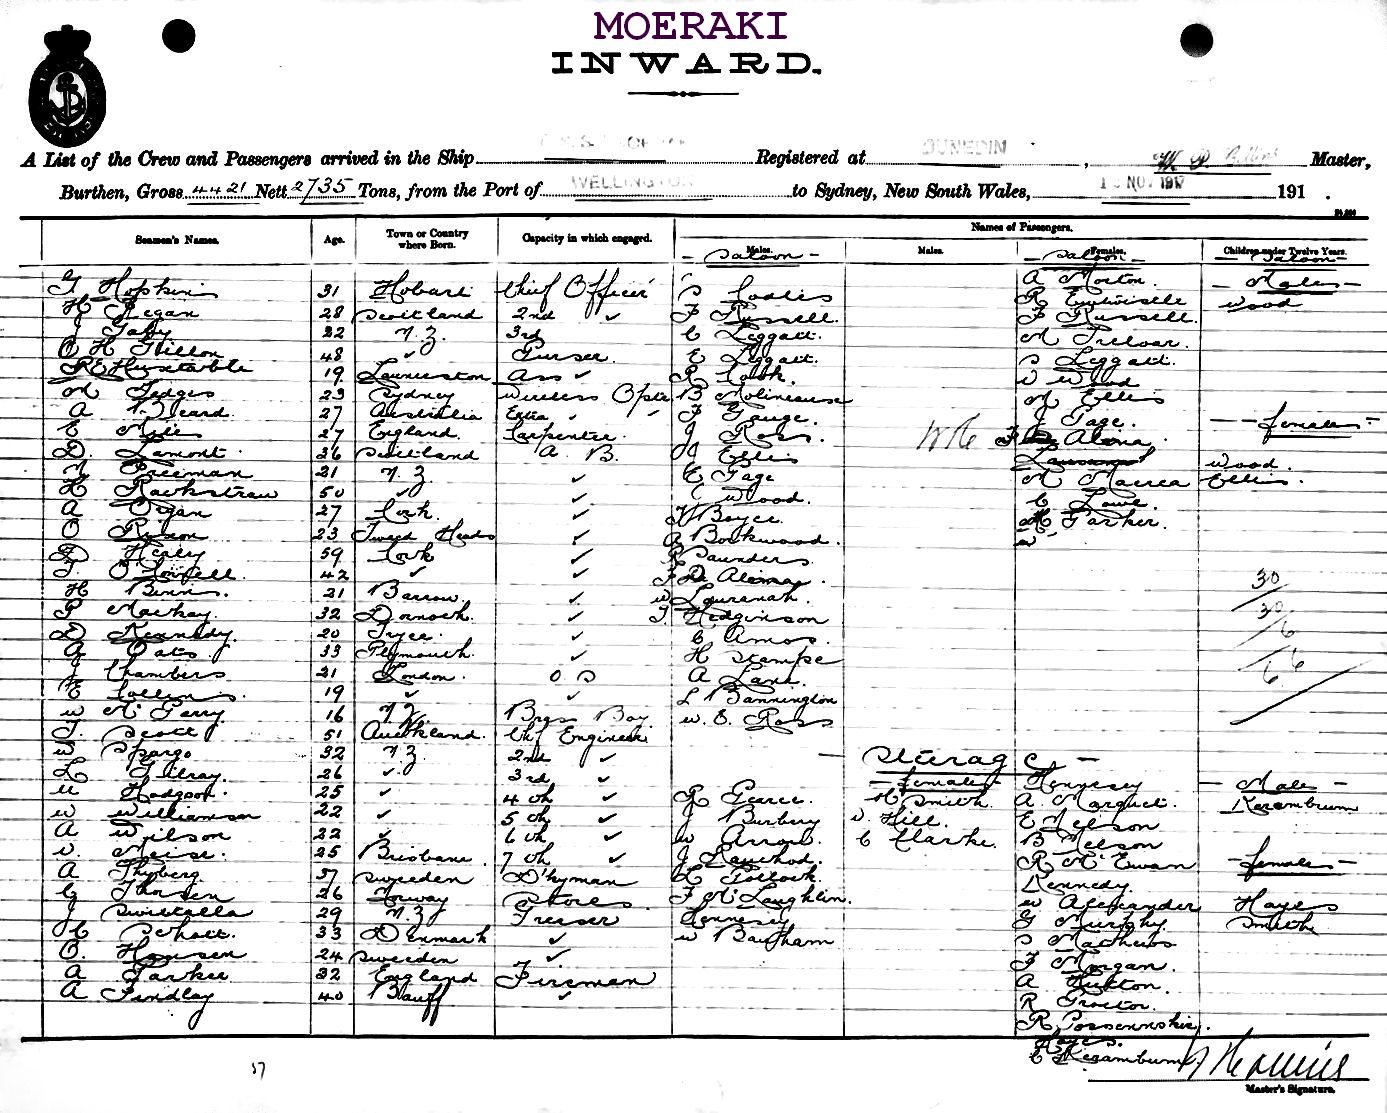 MOERAKI
INWARD.
A List of the Crew and Passengers arrived in the Ship Registered at DUNEDIN, W. D. Master,
Burthen, Gross 4421 Nett 2735 Tons, from the Port of WELLINGTON to Sydney, New South Wales, NOV 1917 191 .
Seamen's Names. Age. Town or Country where Born. Capacity in which engaged. Names of Passengers.
Males. Males. Females. Children under Twelve Years.
- Saloon - - Saloon - Saloon
G Hopkins 31 Hobart Chief Officer A Morton - Males -
H Regan 28 Scotland 2nd ✓ R Entwistle Wood
22 N.Z. 3rd F Russell. F Russell.
O H Gillon 48 ✓ Purser. C Leggatt. M Treloar.
R E Huxtable 19 Launceston Ass ✓ E Leggatt. Leggatt.
M Hedges 23 Sydney Wireless Optr B Molineaux W Wood
A Beard. 27 Australia Extra ✓ F Gauge. M Ellis
E Miles 27 England. Carpenter J Ross. J Gage. - females -
D. Lamont. 36 Scotland A. B. Ellis F Alona.
Freeman 21 N.Z. ✓ E Gage Wood.
H Rawkstraw 50 ✓ ✓ Wood. M Macrea Ellis.
A Organ 27 Cork. ✓ Boyce. C Lowe.
O Ryson 23 Tweed Heads ✓ A Bookwood. Parker.
D Healy 59 Cork ✓ R Saunders
T O'Connell. 42 ✓ ✓ F De Alona. 30
H Binns. 21 Barrow. ✓ W Lauranah. 30
P Mackay. 32 Dornoch. ✓ T Hodginson 6
D Kennedy. 20 Tyree. ✓ C Amos.
A Oats. 33 Plymouth. ✓ H Stampe 6
J Chambers 21 London. O S A Lane.
E Collins. 19 ✓ ✓ L Bannington
W McGarry 16 N.Z. Brass Boy. W. E. Ross
T. Scott 51 Auckland. Chf Engineer
W Spargo 32 N.Z. 2nd ✓ - Steerage -
L Gilray. 26 ✓ 3rd ✓ - females - Hennesey - Males -
Hodgson. 25 ✓ 4 th ✓ R Pearce. H Smith. A Marquet. Kerambrum
W Williamson 22 ✓ 5 th ✓ J Burbery W. Hill. E Nelson
A Wilson 22 ✓ 6 th ✓ W Arrow. C Clarke. B Nelson
W. Meise. 25 Brisbane. 7 th ✓ J R McEwan - females -
A Thyberg 37 Sweeden D'kyman H Pollock. Kennedy.
C Thorsen 26 Norway Stores F McLaughlin. W Alexander Hayes
J Swietalla 29 N.Z. Greaser Hennesey G Murphy. Smith
C Schott. 33 Denmark ✓ W Bautham S Mathews
O. Hansen 24 Sweeden ✓ F Morgan.
A Parker 32 England Fireman A Huxton.
A Findlay 40 Banff ✓ R Proctor
R
Hayes.
C Kerambrum.
Master's Signature.